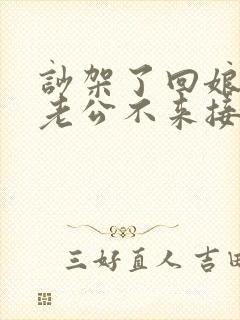 訬架了回娘
老公不来接
三好直人 吉田